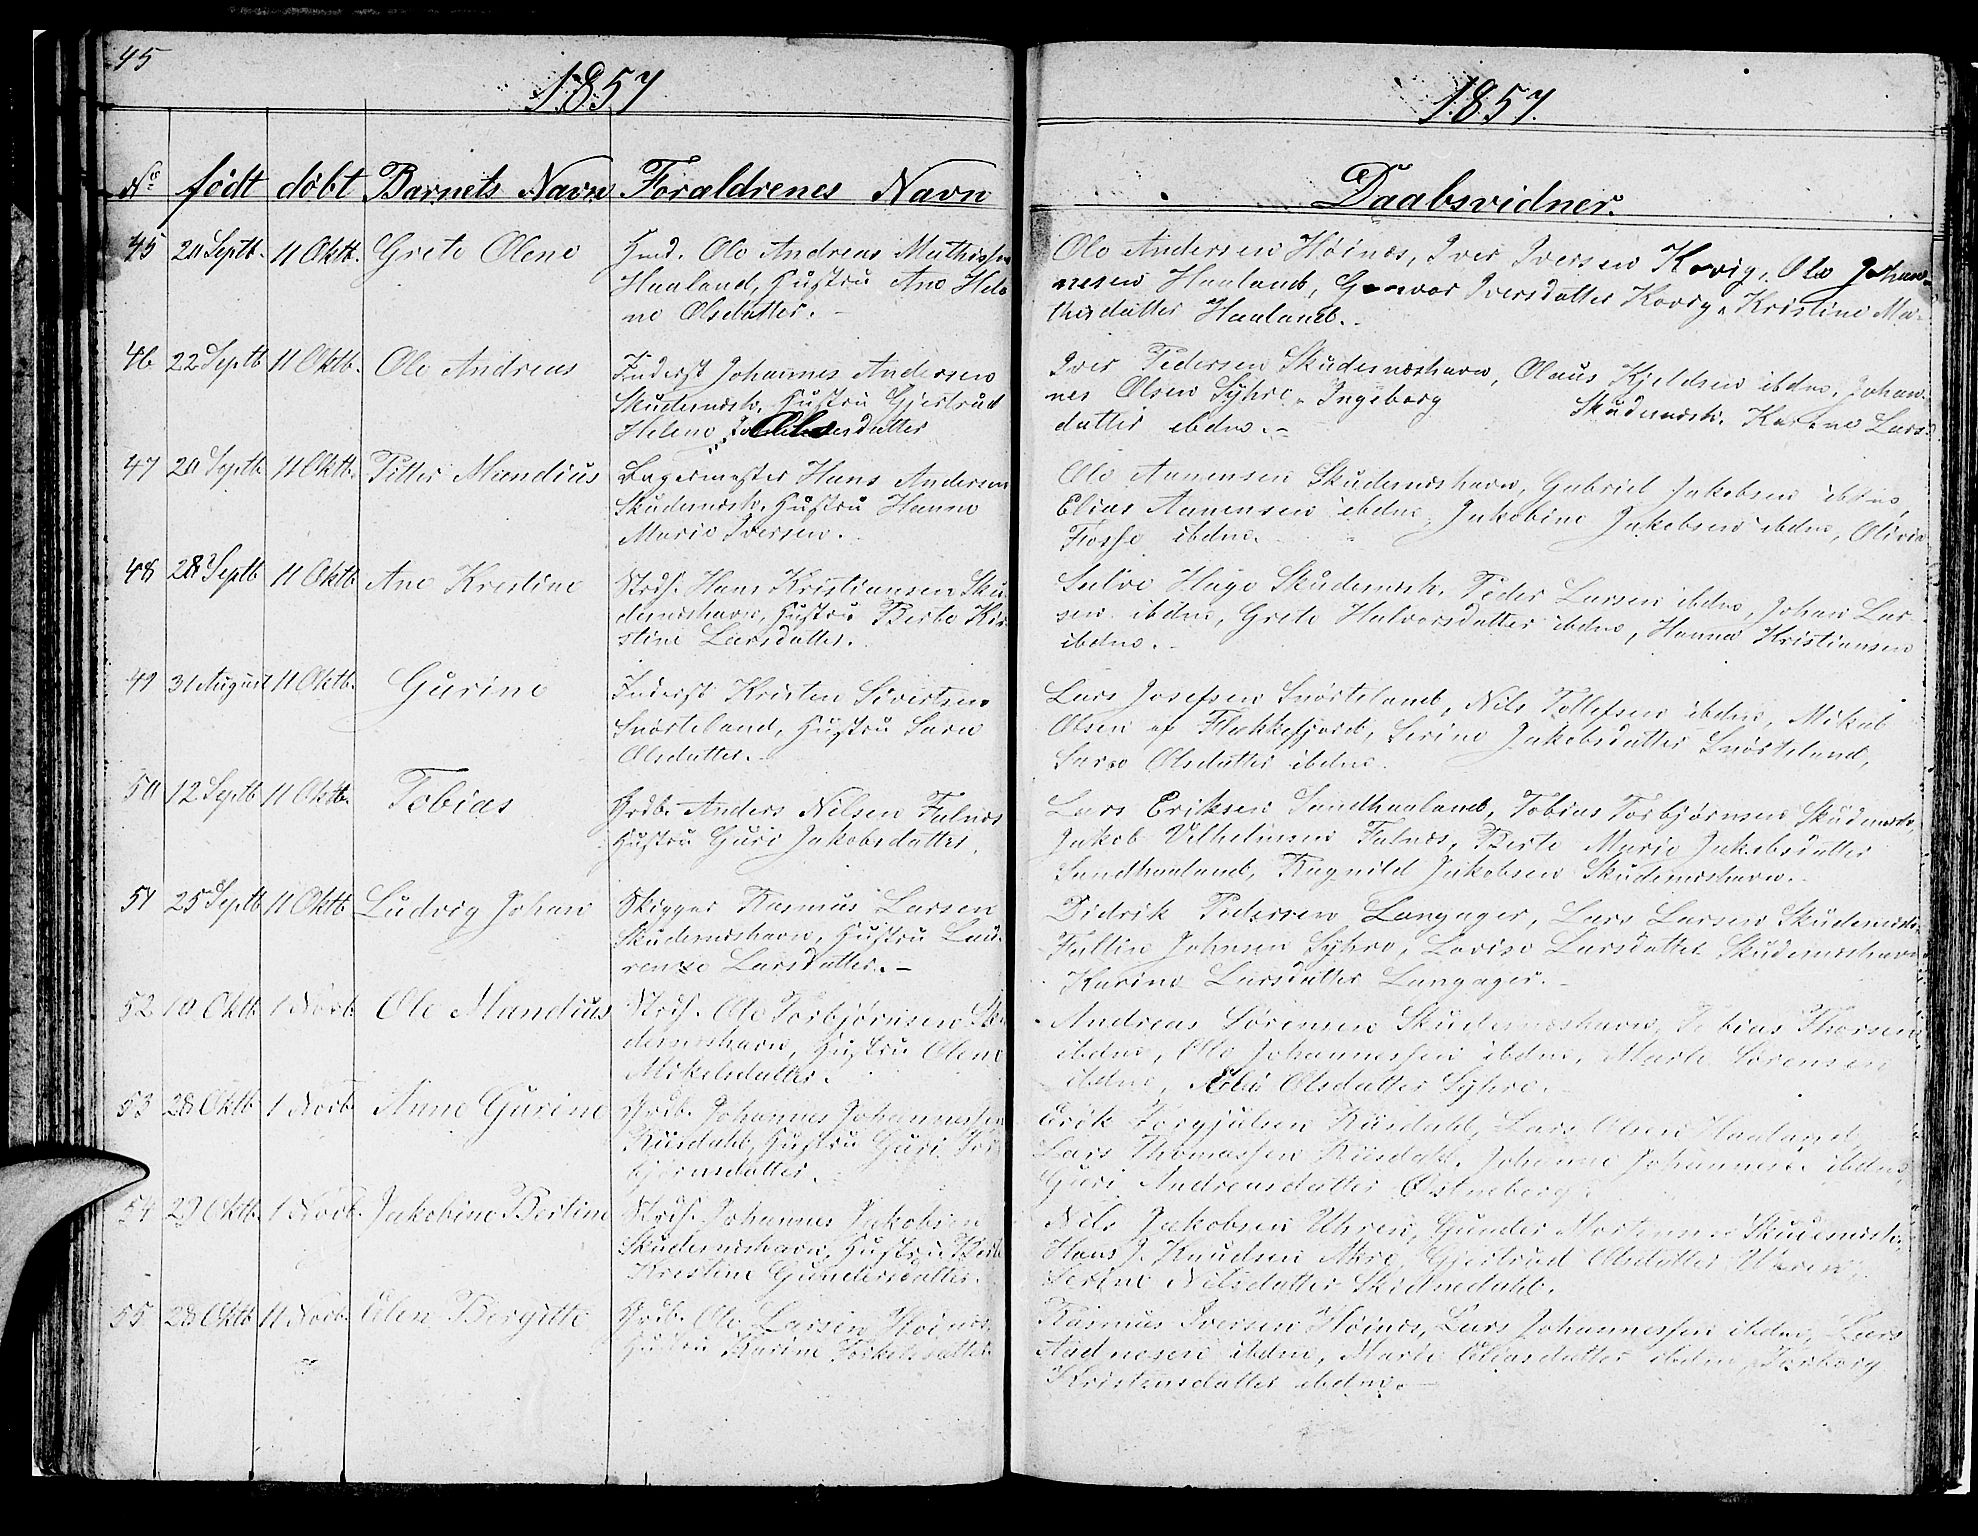 45
1857
No født døbt Barnets Navn Forældrenes Navn
45 20 Septb. 11 Oktb. Grete Olene Ole Andreas Mathissen
Haaland, Hustru Ane Hele
ne Olsdatter.
46 22 Septb 11 Oktb. Ole Andreas Inderst Johannes Andersen
Skudesnesh. Hustru Gjertrud
Helene Olsdatter
47 20 Septb 11 Oktb. Petter Mandius Bagermester Hans Andersen
Skudesnesh. Hustru Hanne
Marie Iversen.
48 28 Septb 11 Oktb Ane Kristine Strds. Hans Kristiansen Sku
desneshavn, Hustru Berte Kri
stine Larsdatter.
49 31 August 11 Oktb. Gurine Inderst Kristen Sivertsen
Snørteland, Hustru Sara
Olsdatter.
50 12 Septb 11 Oktb. Tobias Grdb. Anders Nilsen Falnes
Hustru Guri Jakobsdatter.
51 25 Septb 11 Oktb Ludvig Johan Skipper Rasmus Larsen
Skudesneshavn, Hustru Lau-
rense Larsdatter.
52 10 Oktb. 1 Novb. Ole Mandius Strds. Ole Torbjørnsen Sku
desneshavn, Hustru Olene
Mikelsdatter.
53 28 Oktb 1 Novb. Anne Gurine Grdb. Johannes Johannessen
Hustru Guri Tor
bjørnsdatter.
54 29 Oktb. 1 Novb. Jakobine Bertine Strds. Johannes Jakobsen
Skudesneshavn, Hustru Berte
Kristine Gundersdatter.
55 28 Oktb 11 Novb. Elen Bergitte Grdb. Ole Larsen Høines,
Hustru Karine Torkelsdatter
1857.
Daabsvidner.
Ole Andersen Høines, Iver Iversen Kovig, Ole Johan-
nesen Haaland, Gunvor Iversdatter Kovig, Kristine Ma-
thisdatter Haaland.
Iver Pedersen Skudesneshavn, Olaus Kjeldsen ibdm, Johan-
nes Olsen Syhre, Ingeborg Skudesnesh. Karine Lars-
datter ibdm.
Ole Aanensen Skudesneshavn, Gabriel Jakobsen ibdm,
Elias Aanensen ibdm, Jakobine Jakobsen ibdm, Olivia
Fosse ibdm.
Hage Skudesnesh. Peder Larsen ibdm, Johan Lar-
sen ibdm, Grete Halvorsdatter ibdm, Hanna Kristiansen
ibdm.
Lars Josefsen Snørteland, Nils Tollefsen ibdm, Mikal
Olsen af Flekkefjord, Serine Jakobsdatter Snørteland,
Olsdatter ibdm.
Lars Eriksen Sandhaaland, Tobias Torbjørnsen Skudesnesh.
Jakob Vilhelmsen Falnes, Berte Marie Jakobsdatter
Sandhaaland, Ragnild Jakobsen Skudesneshavn.
Didrik Pedersen Langager, Lars Larsen Skudesnesh.
Johnsen Syhre, Lovise Larsdatter Skudesneshavn
Karine Larsdatter Langager.
Andreas Sørensen Skudesneshavn, Tobias Thorsen
ibdm, Ole Johannessen ibdm, Marte Sørensen
ibdm, Olsdatter Syhre.
Erik Torgjulsen Lars Olsen Haaland
Lars Thomassen Johanne Johannesd. ibdm,
Guri Andreasdatter Østneberg.
Nils Jakobsen Uhren, Gunder Mortensen Skudesnesh.
Hans J. Knudsen Akre, Gjertrud Olsdatter Uhren,
Serine Nilsdatter
Rasmus Iversen Høines, Lars Johannessen ibdm, Lars
Aadnesen ibdm, Marte Eliasdatter ibdm,
Kristensdatter ibdm.